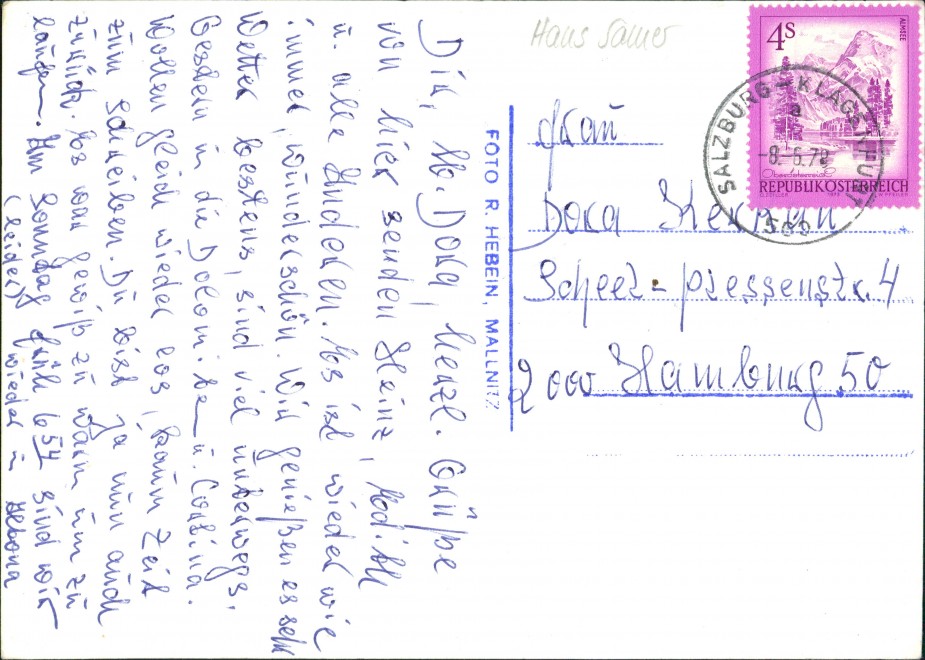 Dir, lb. Dora, herzl. Grüße
von hier senden Heinz, Edith
u. alle Anderen. Es ist wieder wie
immer, wunderschön. Wir genießen es sehr
Wetter bestens, sind viel unterwegs.
Gestern in die Dolomiten u. Cortina.
Wollen gleich wieder los, kaum Zeit
zum Schreiben. Du bist ja nun auch
zurück. Es war gewiß zu warm um zu
laufen. Am Sonntag früh 6 54 sind wir
(leider) wieder in
FOTO R. HEBEIN, MALLNITZ
Hans Sauer
4S
ALMSEE
Oberösterreich
REPUBLIK ÖSTERREICH
SALZBURG – KLAGENFURT
a
-8.-6.78
Frau
Dora
Scheel-Plessenstr. 4
2000 Hamburg 50